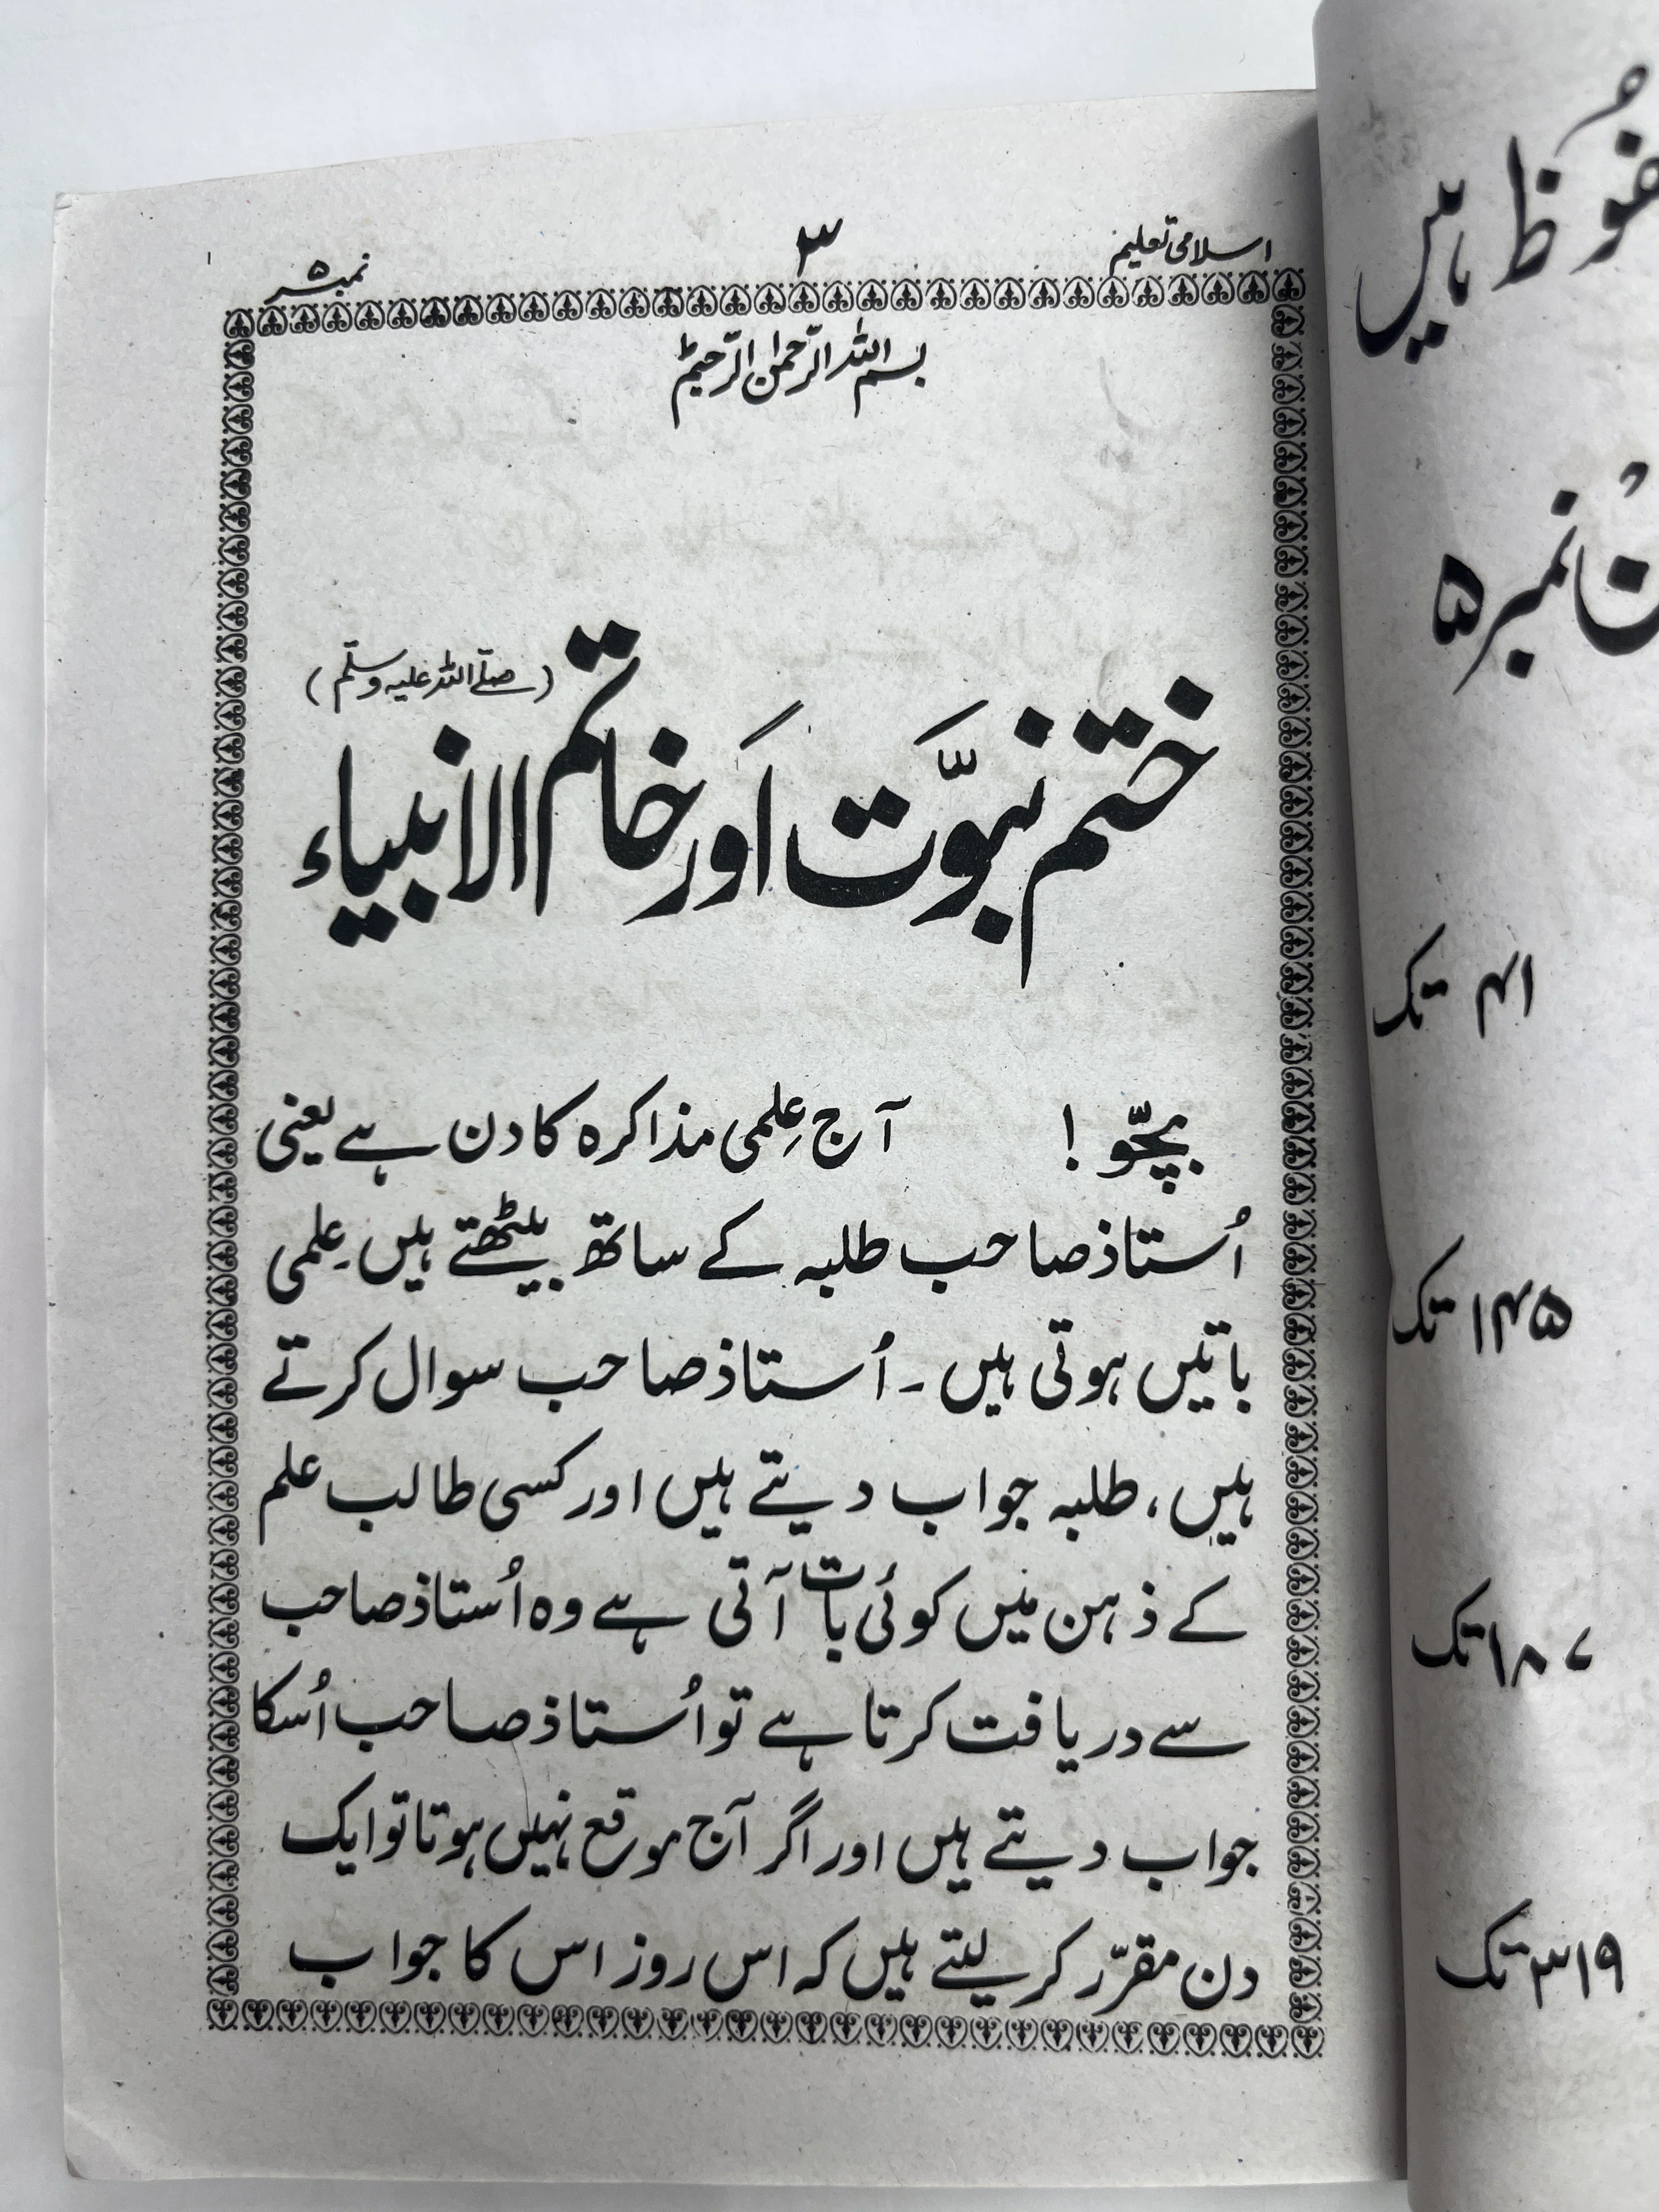 اسلامی تعلیم ۳ نمبر ۵
بسم اللہ الرحمٰن الرحیم
ختم نبوّت اَور خاتم الانبیاء (صلّے اللہ علیہ وسلّم)
بچّو ! آج عِلمی مذاکرہ کا دن ہے یعنی
اُستاذ صاحب طلبہ کے ساتھ بیٹھتے ہیں۔ عِلمی
باتیں ہوتی ہیں ۔ اُستاذ صاحب سوال کرتے
ہیں، طلبہ جواب دیتے ہیں اور کسی طالب علم
کے ذہن میں کوئی بات آتی ہے وہ اُستاذ صاحب
سے دریافت کرتا ہے تو اُستاذ صاحب اُسکا
جواب دیتے ہیں اور اگر آج موقع نہیں ہوتا تو ایک
دن مقرّر کر لیتے ہیں کہ اس روز اس کا جواب
ہیں
نمبر ۵
تک
تک
تک
تک